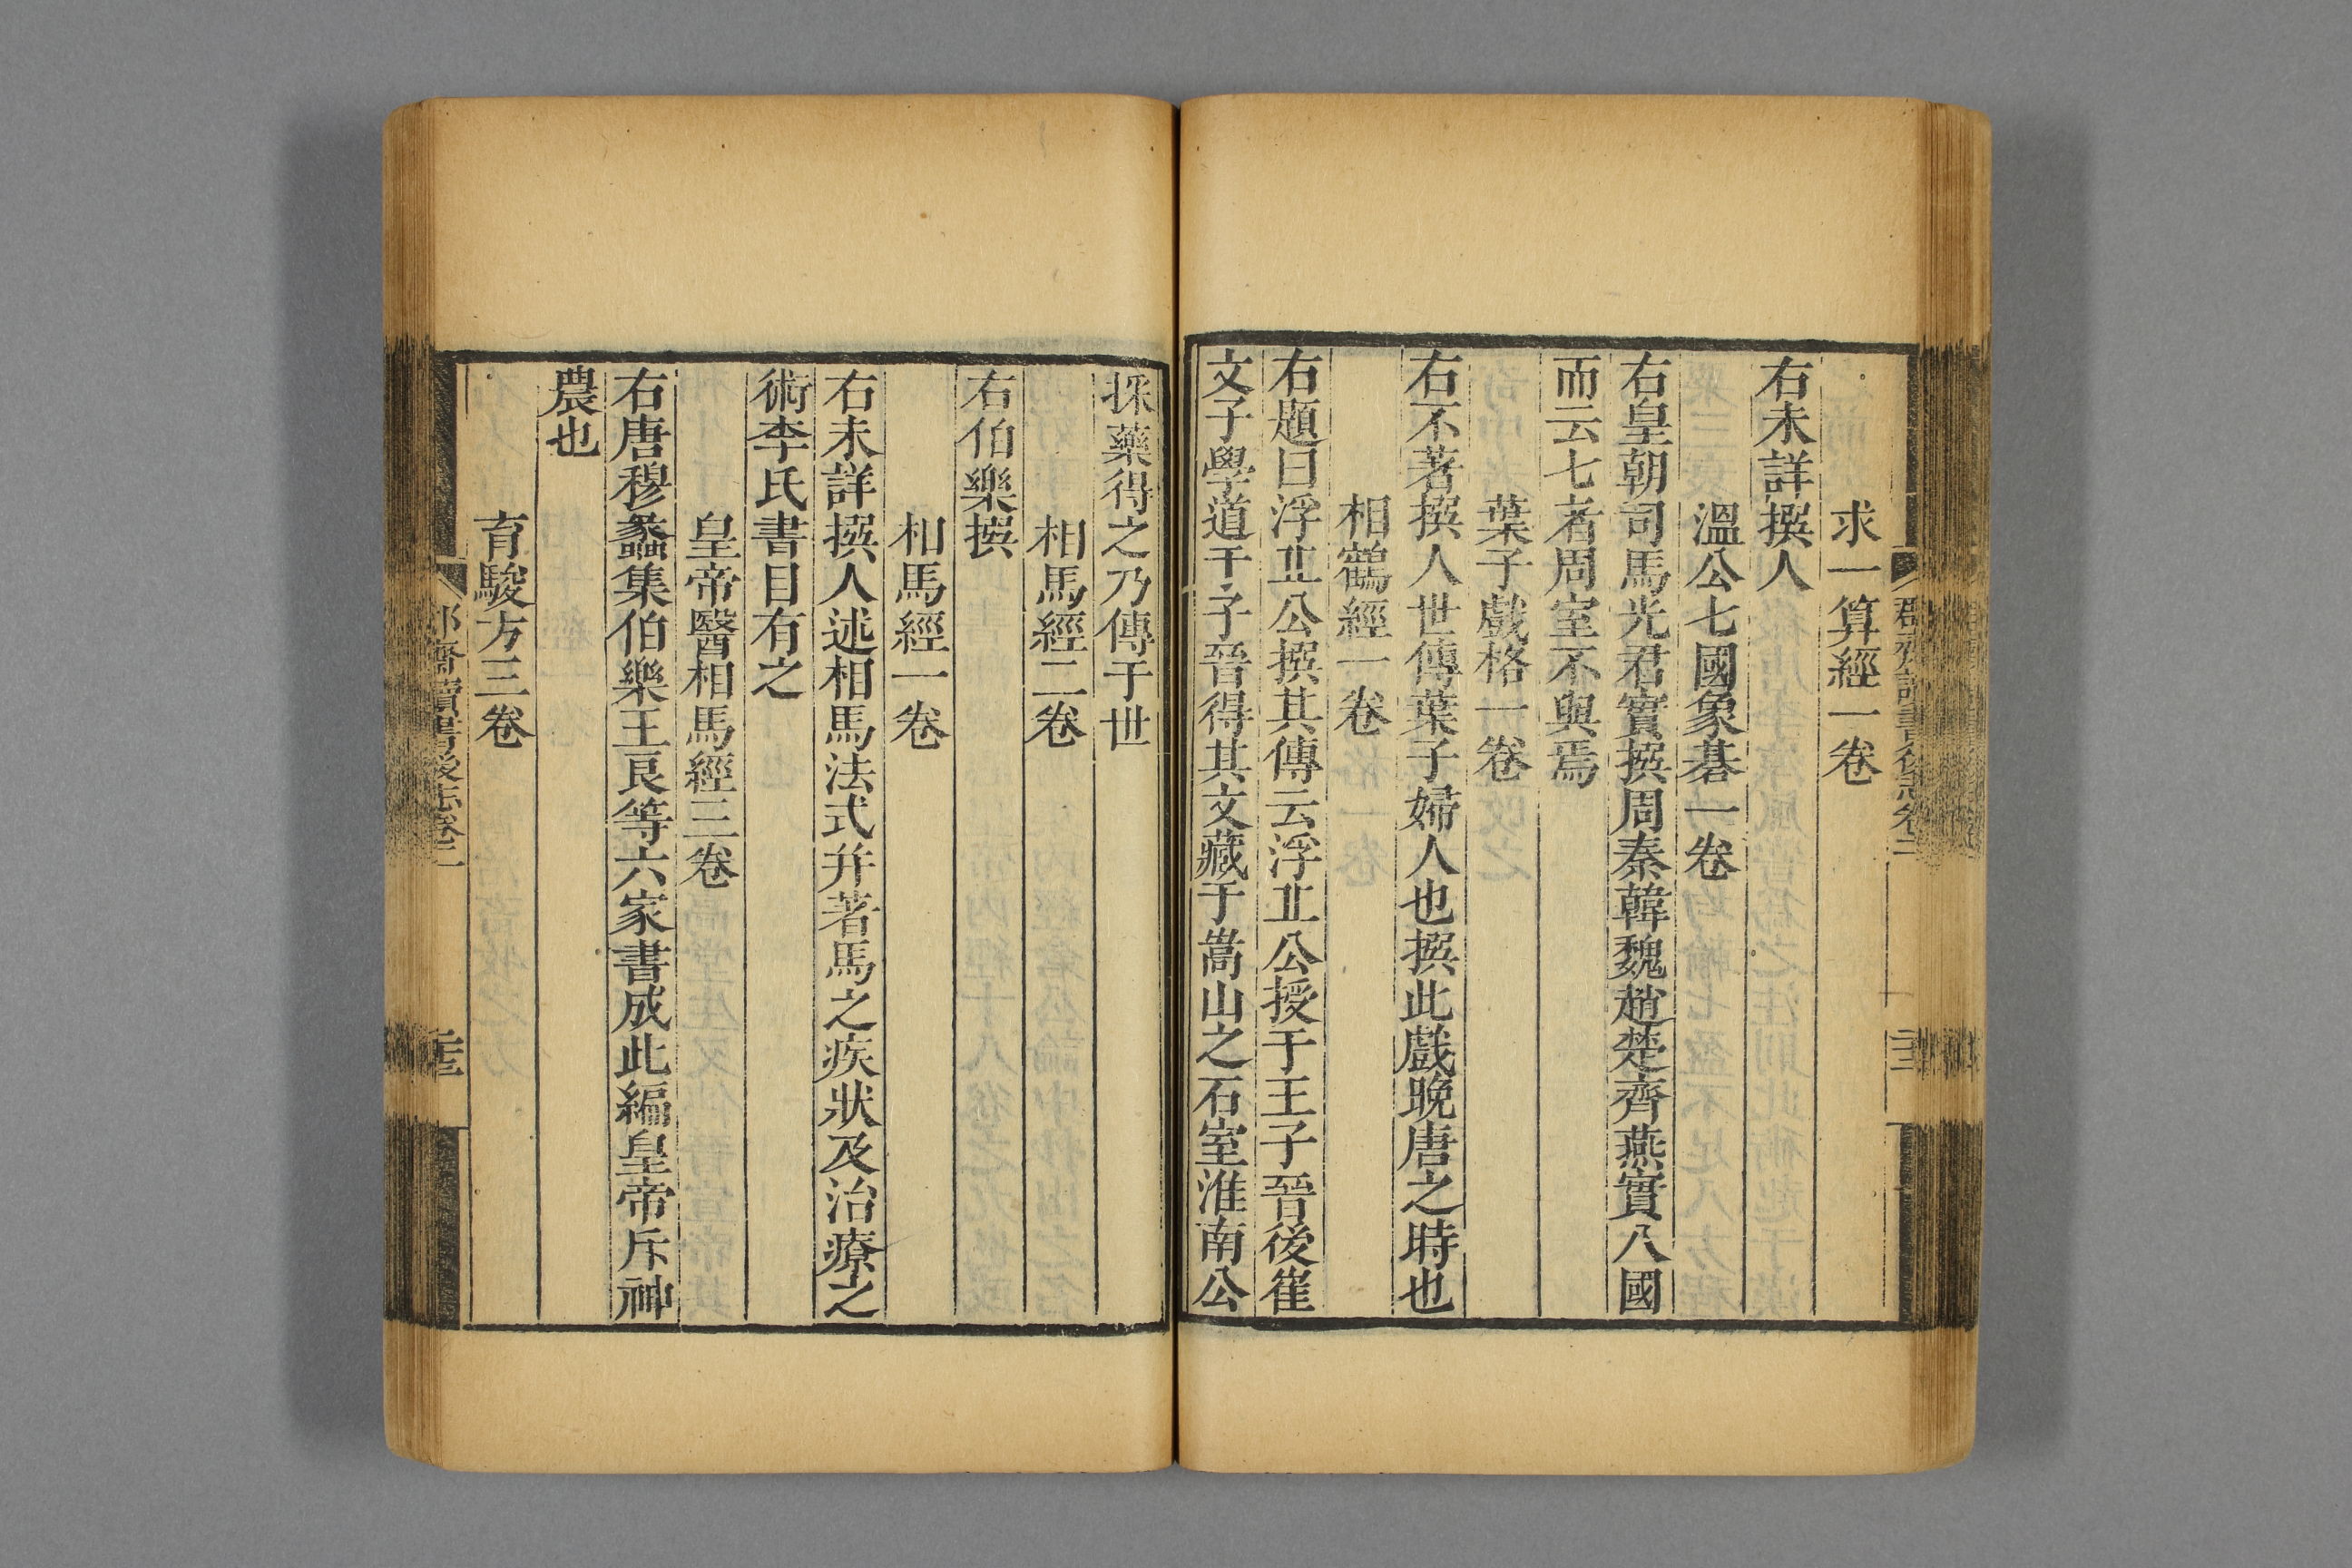 求一算經一卷
右未詳撰人
溫公七國象棊一卷
右皇朝司馬光君實撰周秦韓魏趙楚齊燕實八國
而云七者周室不與焉
葉子戲格一卷
右不著撰人世傳葉子婦人也撰此戲晚唐之時也
相鶴經一卷
右題曰浮丠公撰其傳云浮丠公授于王子晉後崔
文子學道于子晉得其文藏于嵩山之石室淮南公
採藥得之乃傳于世
相馬經二卷
右伯樂撰
相馬經一卷
右未詳撰人述相馬法式幷著馬之疾狀及治療之
術李氏書目有之
皇帝醫相馬經三卷
右唐穆蠡集伯樂王良等六家書成此編皇帝斥神
農也
育駿方三卷
齋讀書後志卷二